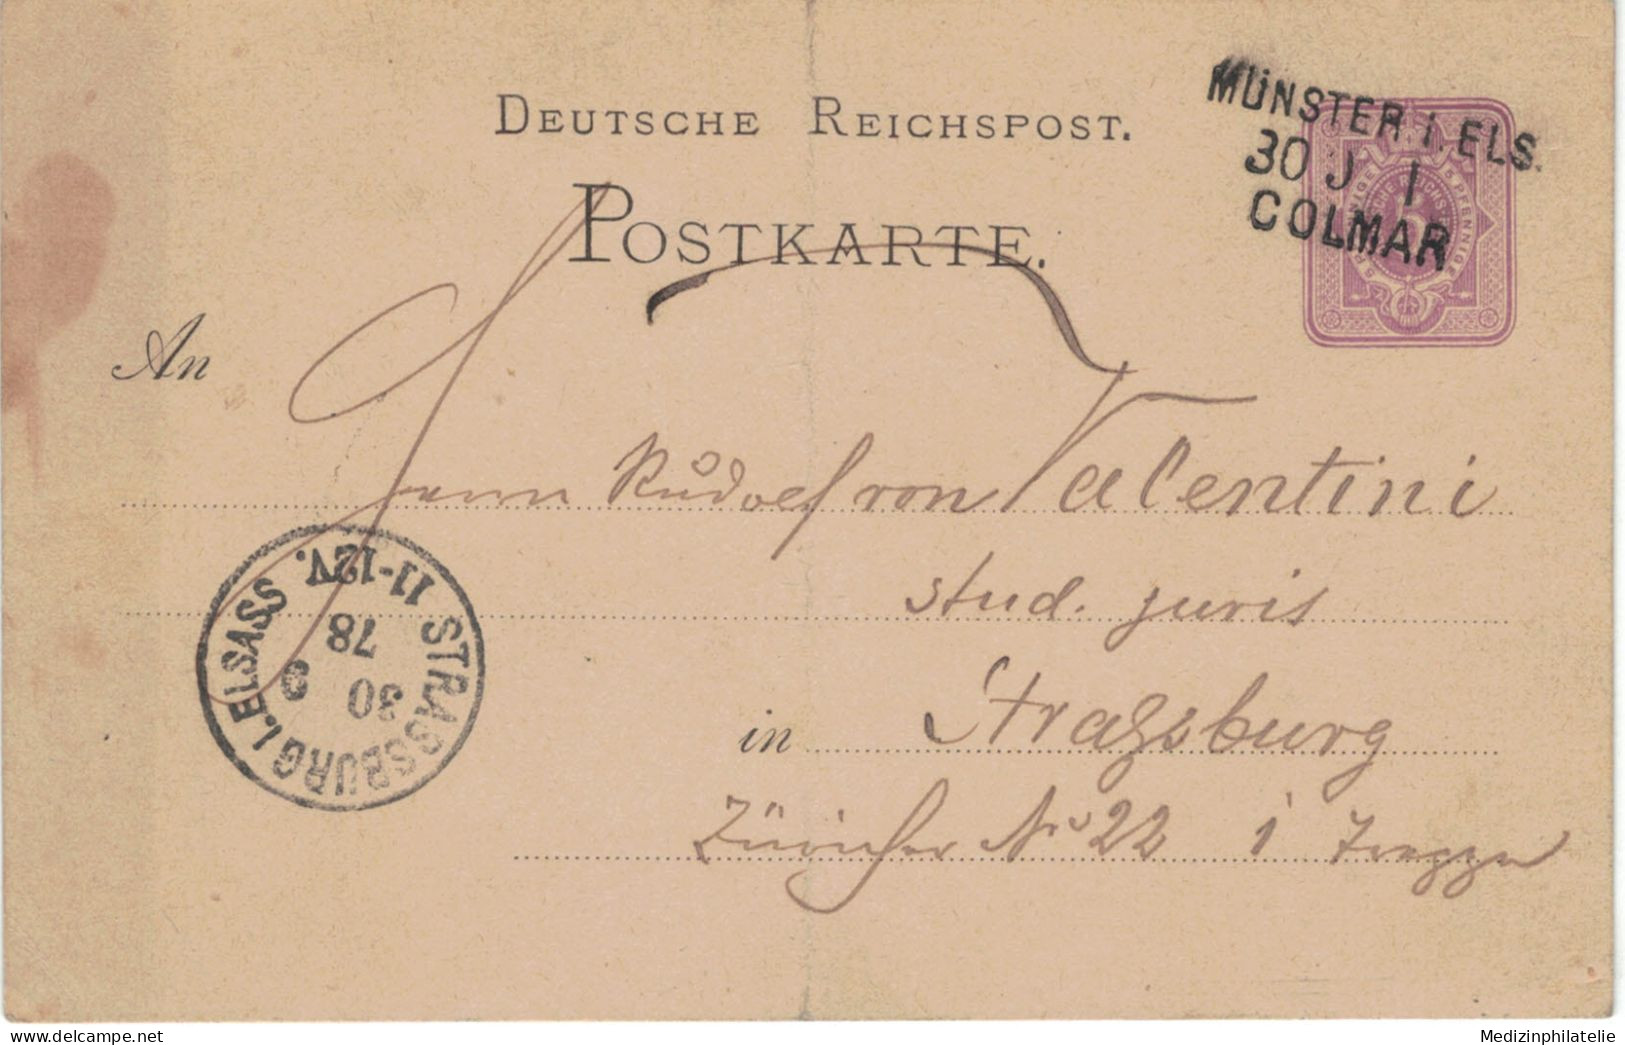 DEUTSCHE REICHSPOST.
MÜNSTER i. ELS.
30 J 1
COLMAR
POSTKARTE.
5 PFENNIGE
5
An
Herrn Rudolf von Valentini
stud. juris
in Straßburg
Züricher No 22 i
STRASSBURG I. ELSASS
30
78
11-12V.
delcampe.net
Medizinphilatelie